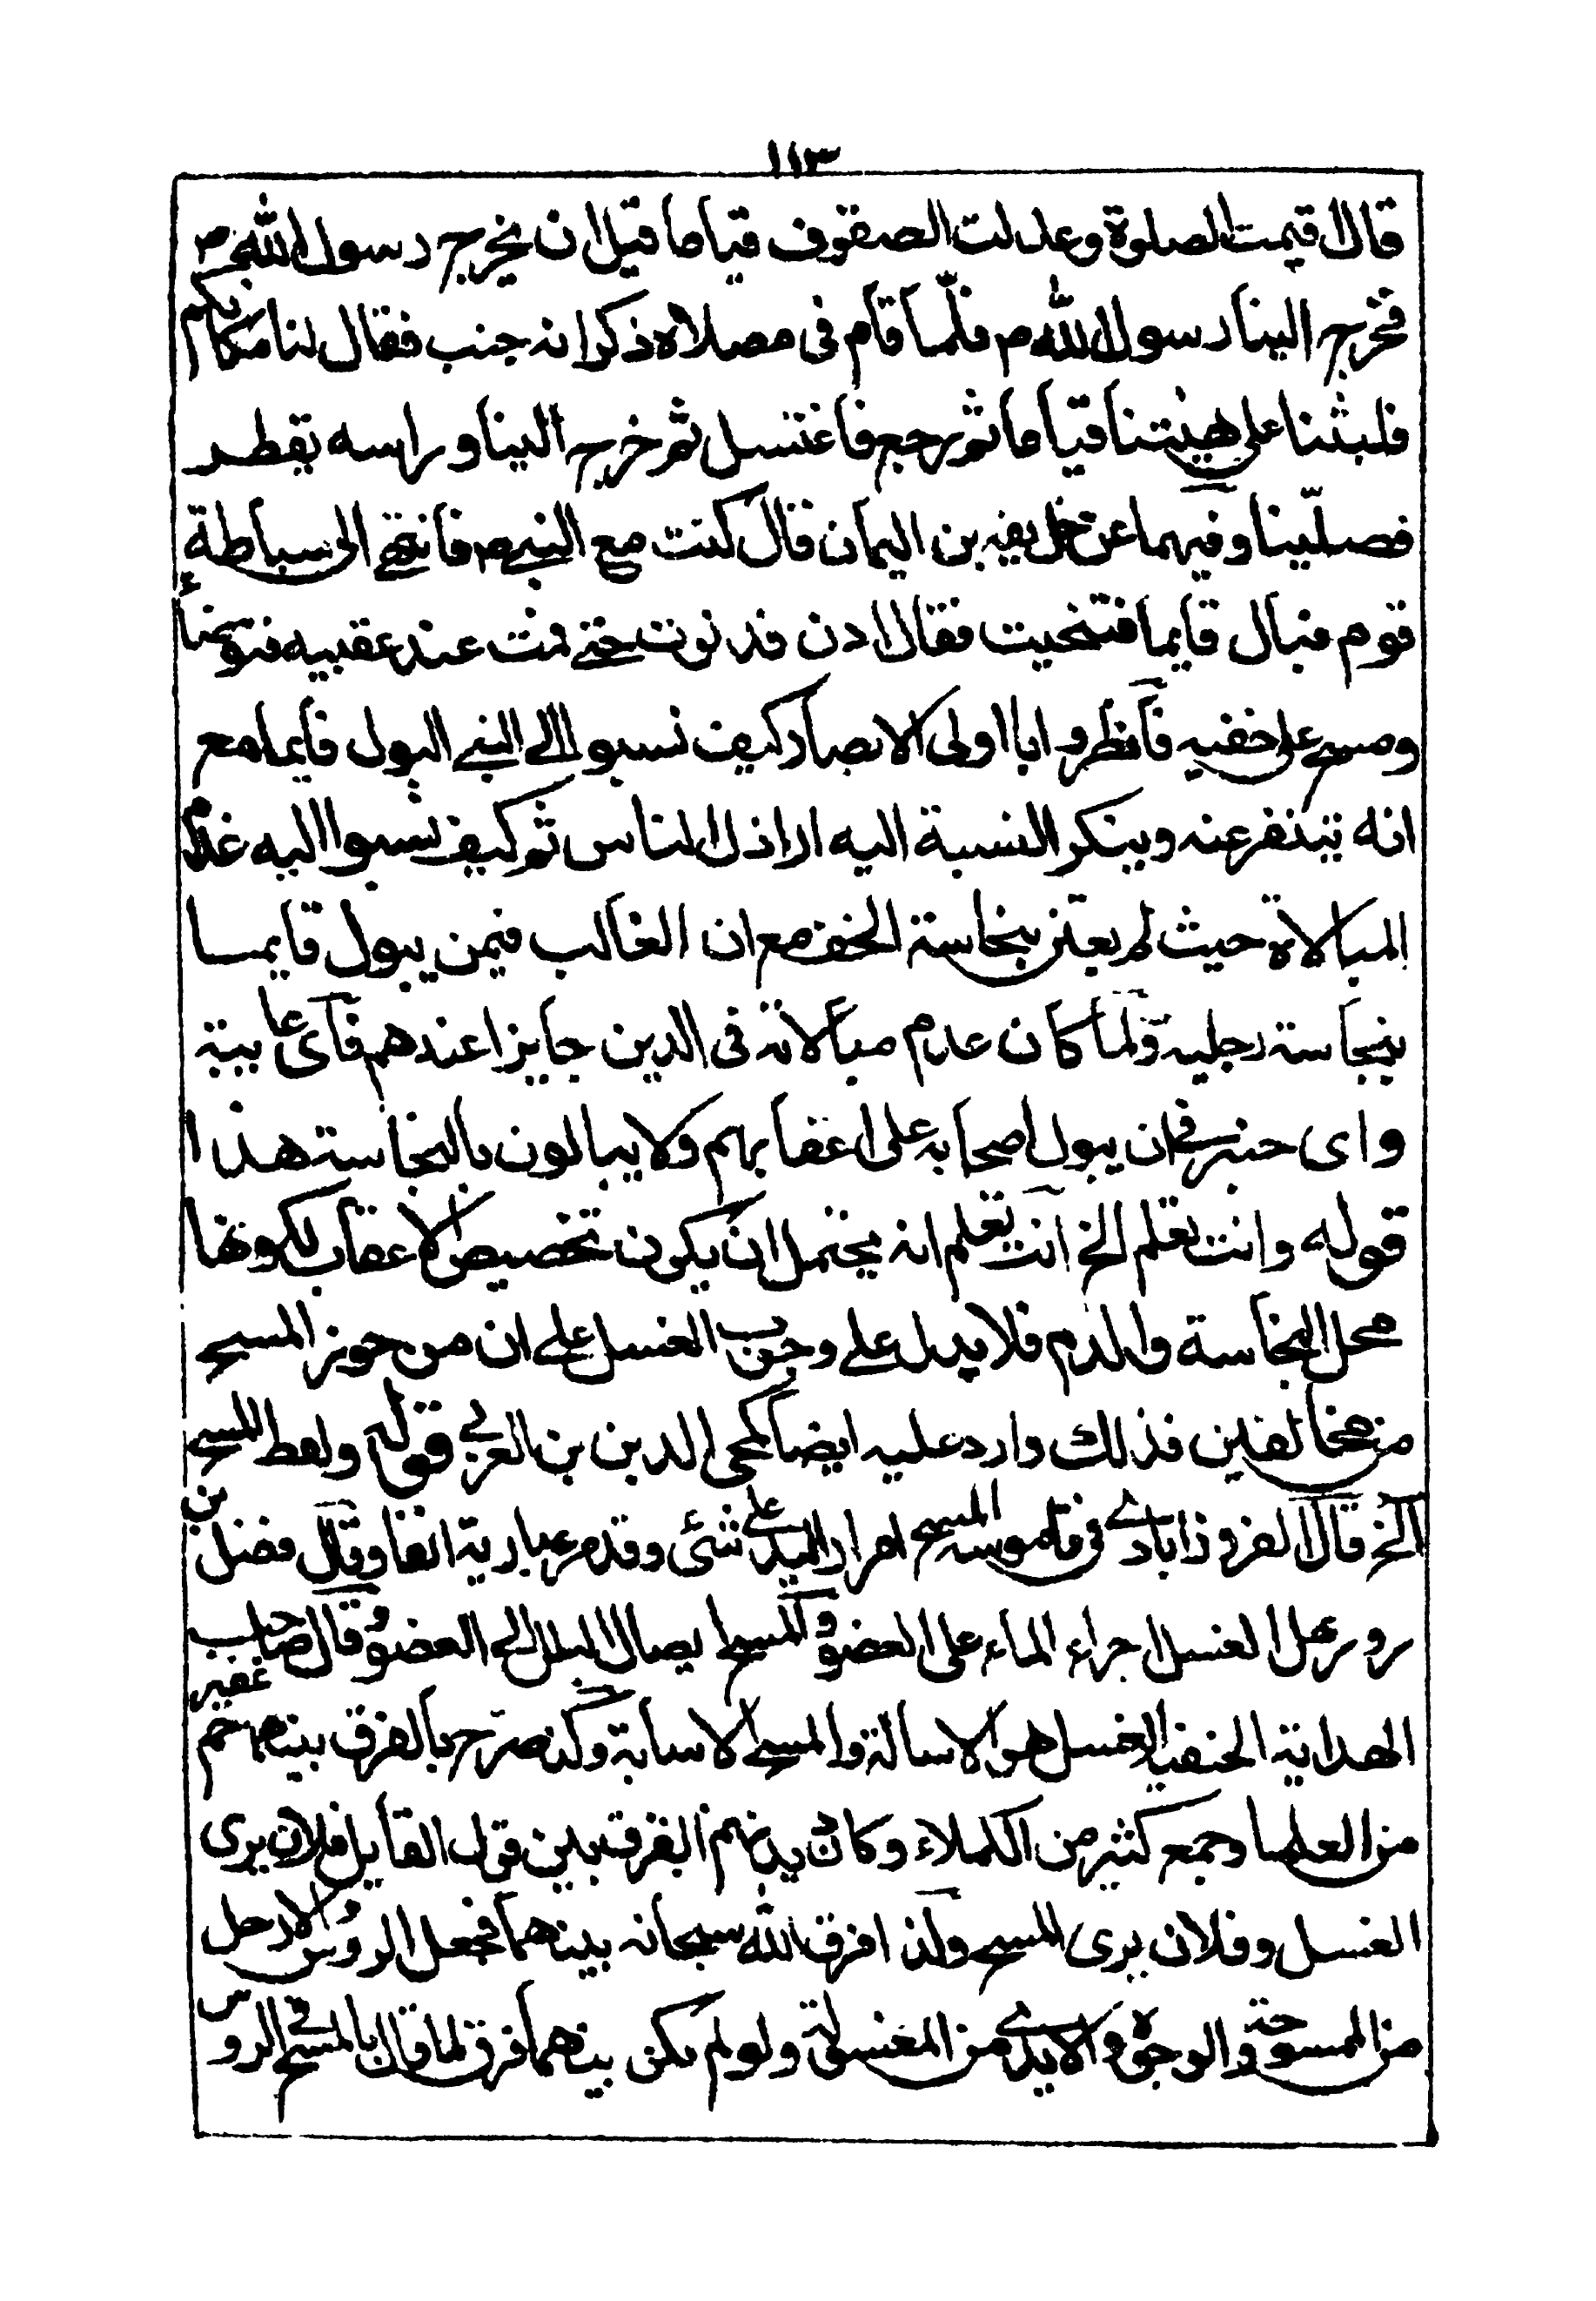 ١١٣
قال اقيمت الصلوة وعدلت الصفوف قياما قبل ان يخرج رسول الله ص
فخرج الينا رسول الله م فلما قام فى مصلاه ذكر انه جنب فقال لنا مكانكم
فلبثنا على هيئتنا قياما ثم رجع فاغتسل ثم خرج الينا وراسه يقطر
فصلّينا وفيهما عن حذيفه بن اليمان قال كنت مع النبى ص فانتهى الى سباطة
قوم فبال قايما فتنحيت فقال ادن فدنوت حتى قمت عند عقبيه فتوضأ
ومسح على خفيه فانظروا يا اولى الابصار كيف نسبوا الى النبى البول قايما مع
انه يتنفر عنه وينكر النسبة اليه اراذل الناس ثم كيف نسبوا اليه عدم
المبالاة حيث لم يعتن بنجاسة الخف مع ان الغالب فيمن يبول قايما
نجاسة رجليه ولما كان عدم مبالاته فى الدين جايزا عندهم فاى عايبة
واى حنر فى ان يبول اصحابه على اعقابهم ولا يبالون بالنجاسة هذا
قوله وانت تعلم الخ انت تعلم انه يحتمل ان يكون تخصيص الاعقاب لكونها
محل النجاسة والدم فلا يدل على وجوب الغسل على ان من جوز المسح
من مخالفين فذلك وارد عليه ايضا كمحى الدين بن العربى قوله ولفظ المسح
الخ قال الفيروزابادى فى قاموسه المسح امرار اليد على شئ وقد مر عبارته انفا وقال فضل بن
روزبهان الغسل اجراء الماء على العضو والمسح ايصال البلل الى العضو وقال صاحب
الهداية الحنفية الغسل هو الاسالة والمسح الاصابة وكذا صرح بالفرق بينهما جم غفير
من العلما وجمع كثير من الكملاء وكان ديدنهم الفرق بين قول القايل فلان يرى
الغسل وفلان يرى المسح ولذا فرق الله سبحانه بينهما فجعل الرؤس والارجل
من الممسوحة والوجوه والايدى من المغسولة ولو لم يكن بينهما فرق لما قال بالمسح فى الرؤس